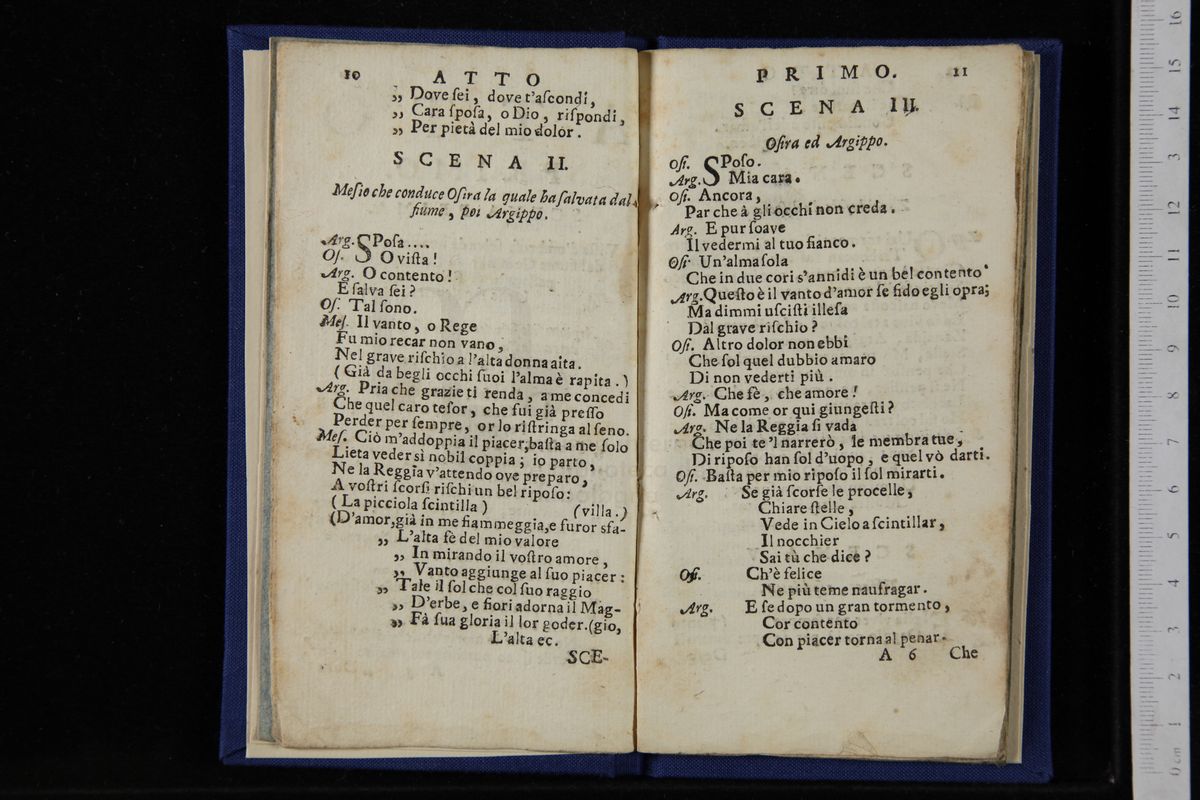 10 ATTO
„ Dove ſei, dove t'aſcondi,
„ Cara ſpoſa, o Dio, riſpondi,
„ Per pietà del mio dolor.
SCENA II.
Meſio che conduce Oſira la quale ha ſalvata dal
fiume, poi Argippo.
Arg. SPoſa....
Oſ. O viſta!
Arg. O contento!
E ſalva ſei?
Oſ. Tal ſono.
Meſ. Il vanto, o Rege
Fu mio recar non vano,
Nel grave riſchio a l'alta donna aita.
(Già da begli occhi ſuoi l'alma è rapita.)
Arg. Pria che grazie ti renda, a me concedi
Che quel caro teſor, che fui già preſſo
Perder per ſempre, or lo riſtringa al ſeno.
Meſ. Ciò m'addoppia il piacer, baſta a me ſolo
Lieta veder sì nobil coppia; io parto,
Ne la Reggia v'attendo ove preparo,
A voſtri ſcorſi riſchi un bel ripoſo:
(La picciola ſcintilla) (villa.)
(D'amor, già in me fiammeggia, e furor sfa-
„ L'alta fè del mio valore
„ In mirando il voſtro amore,
„ Vanto aggiunge al ſuo piacer:
„ Tale il ſol che col ſuo raggio
„ D'erbe, e fiori adorna il Mag-
„ Fà ſua gloria il lor goder. (gio,
L'alta ec.
SCE-
PRIMO. 11
SCENA III.
Oſira ed Argippo.
Oſi. SPoſo.
Arg. Mia cara.
Oſi. Ancora,
Par che à gli occhi non creda.
Arg. E pur ſoave
Il vedermi al tuo fianco.
Oſi. Un'alma ſola
Che in due cori s'annidi è un bel contento.
Arg. Queſto è il vanto d'amor ſe fido egli opra;
Ma dimmi uſciſti illeſa
Dal grave riſchio?
Oſi. Altro dolor non ebbi
Che ſol quel dubbio amaro
Di non vederti più.
Arg. Che fè, che amore!
Oſi. Ma come or qui giungeſti?
Arg. Ne la Reggia ſi vada
Che poi te 'l narrerò, le membra tue,
Di ripoſo han ſol d'uopo, e quel vò darti.
Oſi. Baſta per mio ripoſo il ſol mirarti.
Arg. Se già ſcorſe le procelle,
Chiare ſtelle,
Vede in Cielo a ſcintillar,
Il nocchier
Sai tù che dice?
Oſi. Ch'è felice
Ne più teme naufragar.
Arg. E ſe dopo un gran tormento,
Cor contento
Con piacer torna al penar.
A 6 Che
0 cm 1 2 3 4 5 6 7 8 9 10 11 12 13 14 15 16